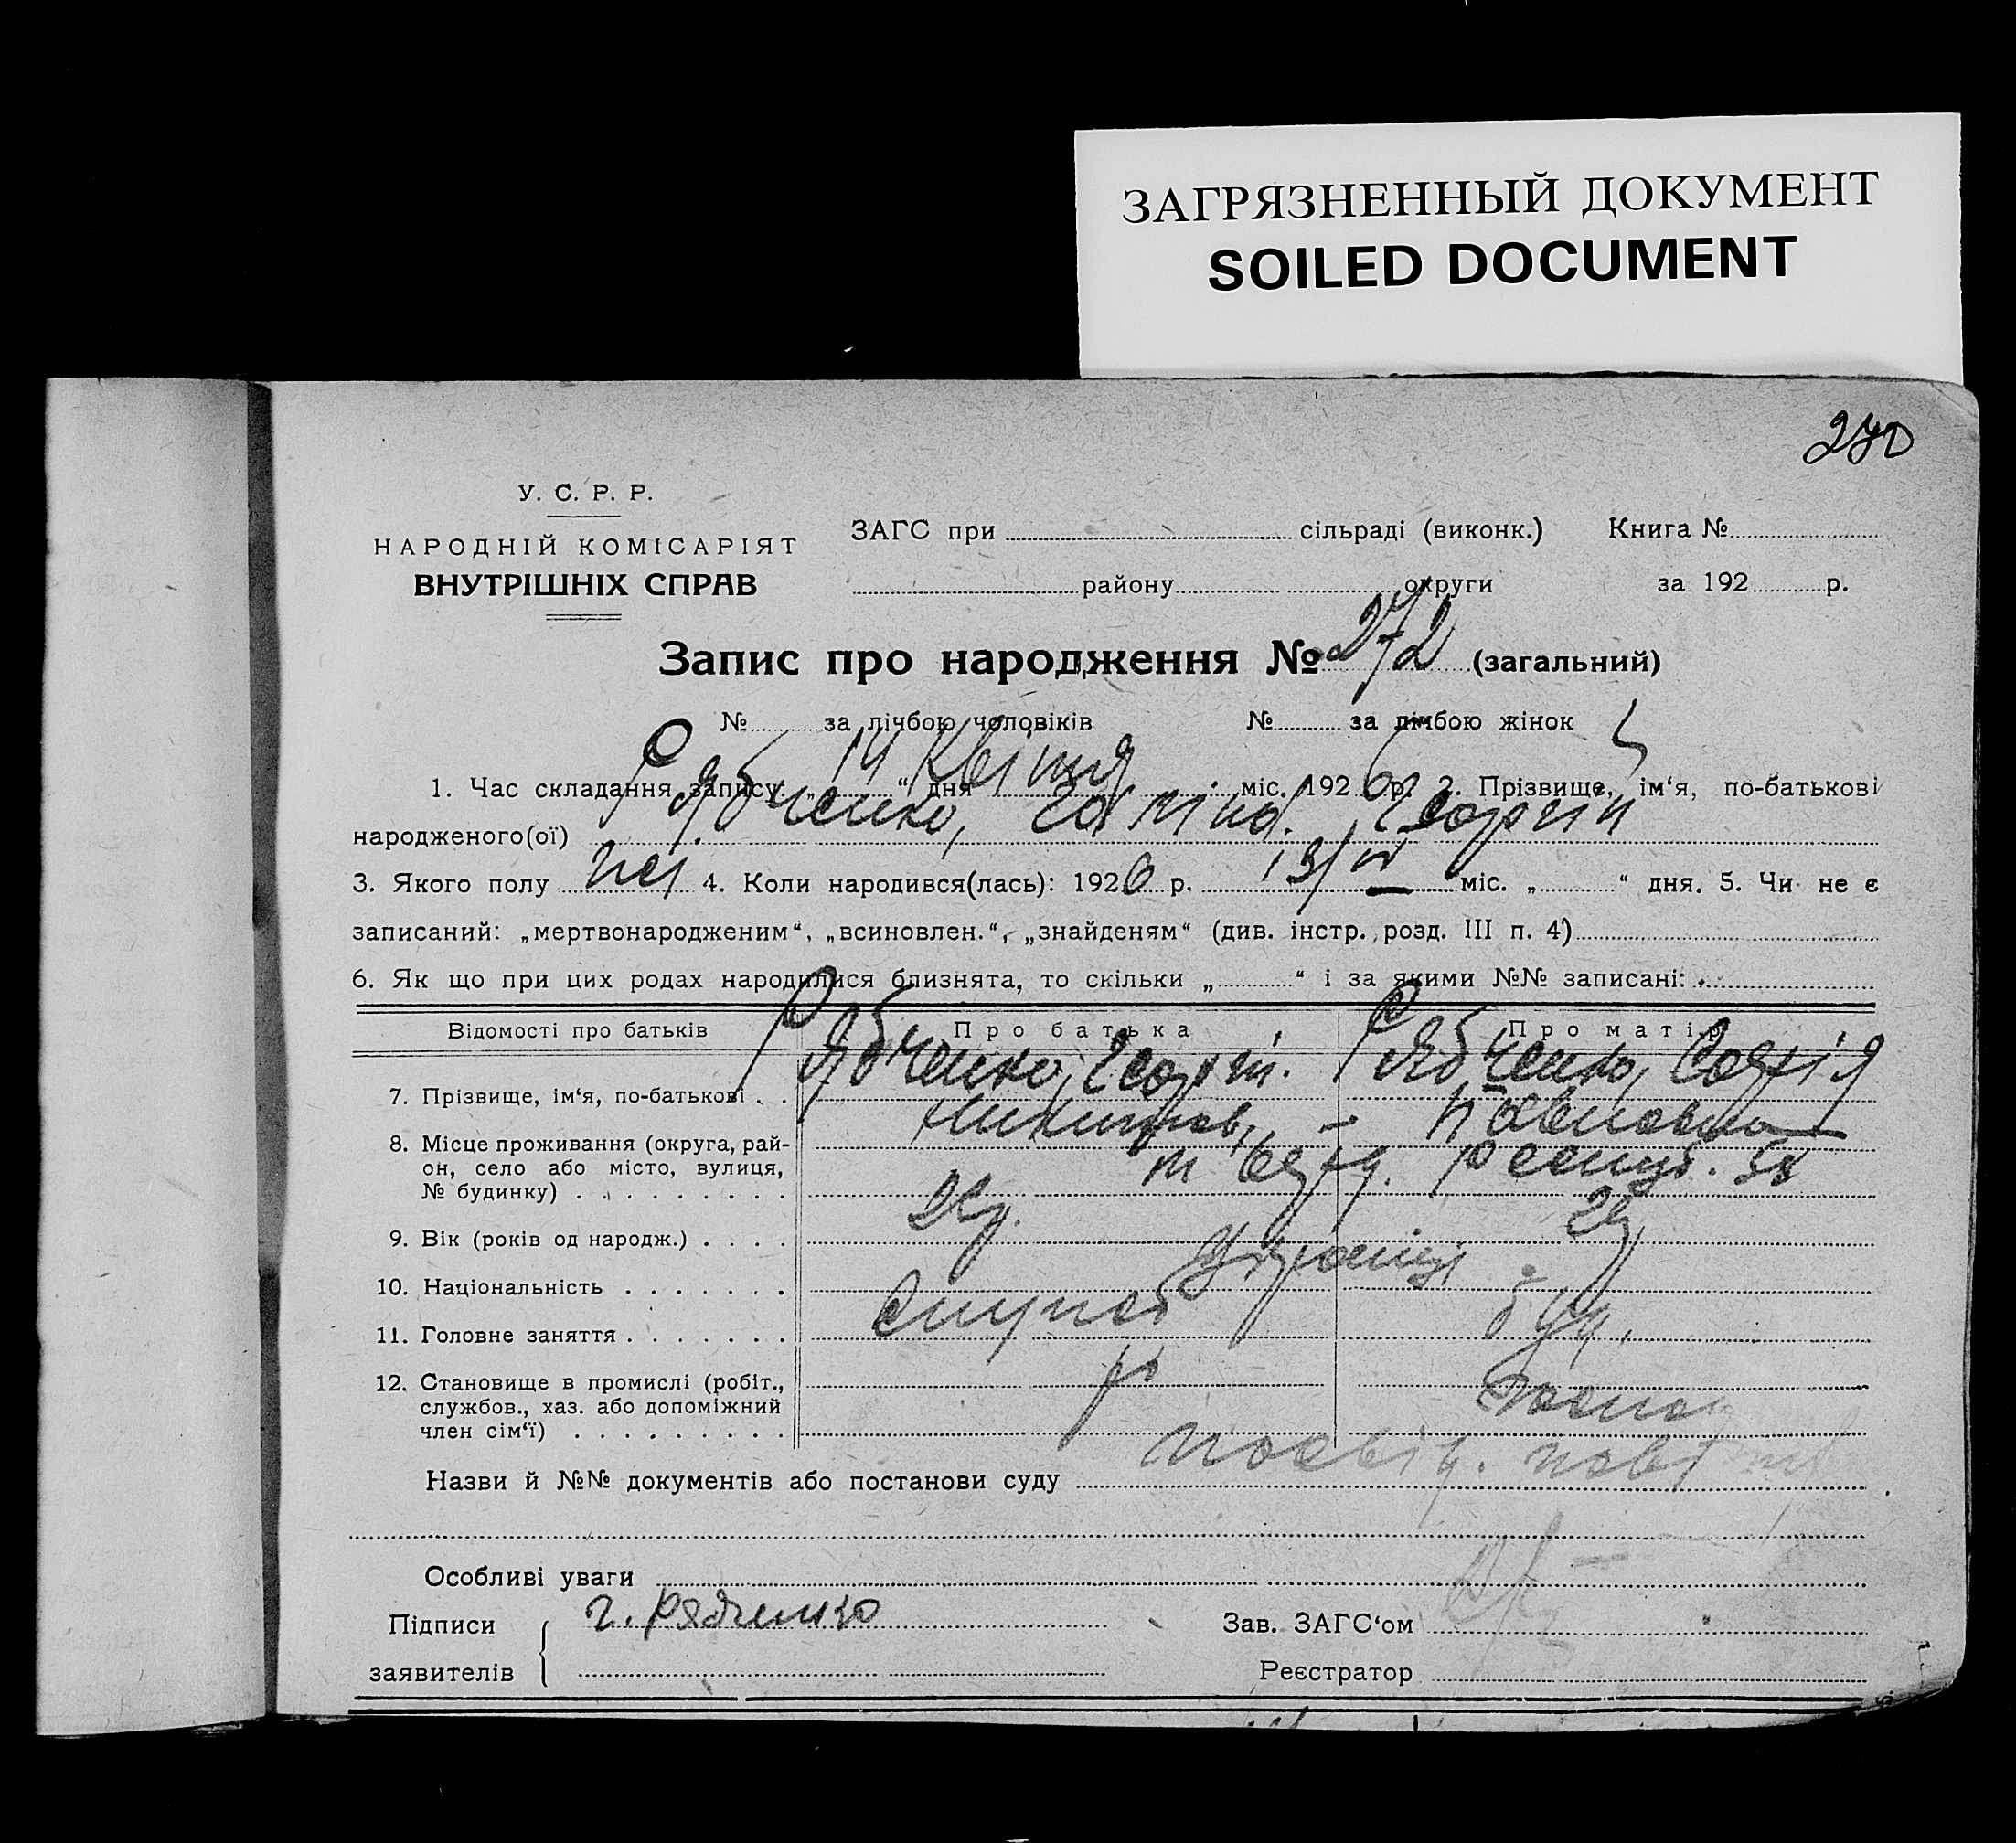 ЗАГРЯЗНЕННЫЙ ДОКУМЕНТ
SOILED DOCUMENT
270
У. С. Р. Р.
НАРОДНІЙ КОМІСАРІЯТ
ВНУТРІШНІХ СПРАВ
ЗАГС при сільраді (виконк.) Книга №
району округи за 192 р.
Запис про народження № 272 (загальний)
№ за лічбою чоловіків № за лічбою жінок
1. Час складання запису: „14“ дня Квітня міс. 1926 р. 2. Прізвище, ім‘я, по-батькові
народженого(ої) Рябченко, Георгій
3. Якого полу 4. Коли народився(лась): 1926 р. 13/IV міс. „ “ дня. 5. Чи не є
записаний: „мертвонародженим“, „всиновлен.“, „знайденям“ (див. інстр. розд. III п. 4)
6. Як що при цих родах народилися близнята, то скільки „ “ і за якими №№ записані:
Відомості про батьків Про батька Про матір
7. Прізвище, ім‘я, по-батькові Рябченко, Георг. Рябченко, Софія
Никитов. Павловна
8. Місце проживання (округа, рай-
он, село або місто, вулиця,
№ будинку)
9. Вік (років од народж.)
10. Національність Українці
11. Головне заняття
12. Становище в промислі (робіт.,
службов., хаз. або допоміжний
член сім‘ї)
Назви й №№ документів або постанови суду посвід.
Особливі уваги
Підписи Г. Рябченко Зав. ЗАГС‘ом
заявителів Реєстратор